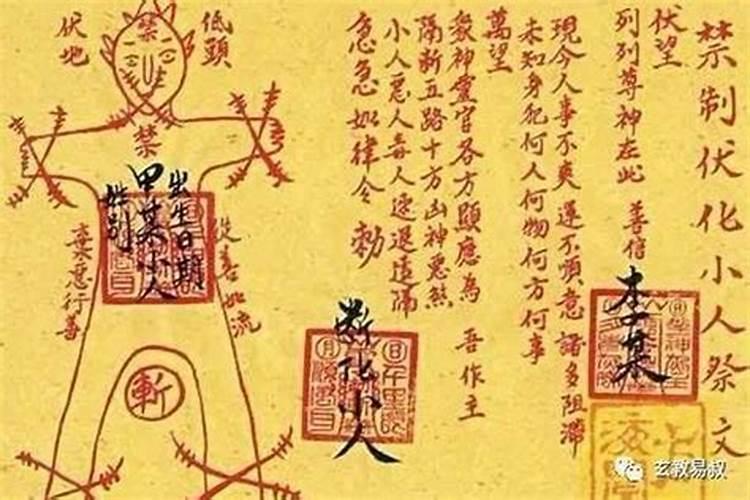 禁制伏化小人祭文
伏望
列列尊神在此 善信 李某
現今人事不爽 運不順意 諸多阻滯
未知身犯何人何物何方何事
萬望
衆神靈官各方顯應為 吾作主
隔斷五路十方凶神惡煞
小人惡人毒人速退遠隔
急急如律令 勅
斷化小人
低頭
伏地
禁
禁
出生日期
甲某小人
姓别
從善如流
棄惡行善
斬
玄教易叔